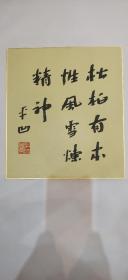 松柏有本
性風雪煉
精神
平凹